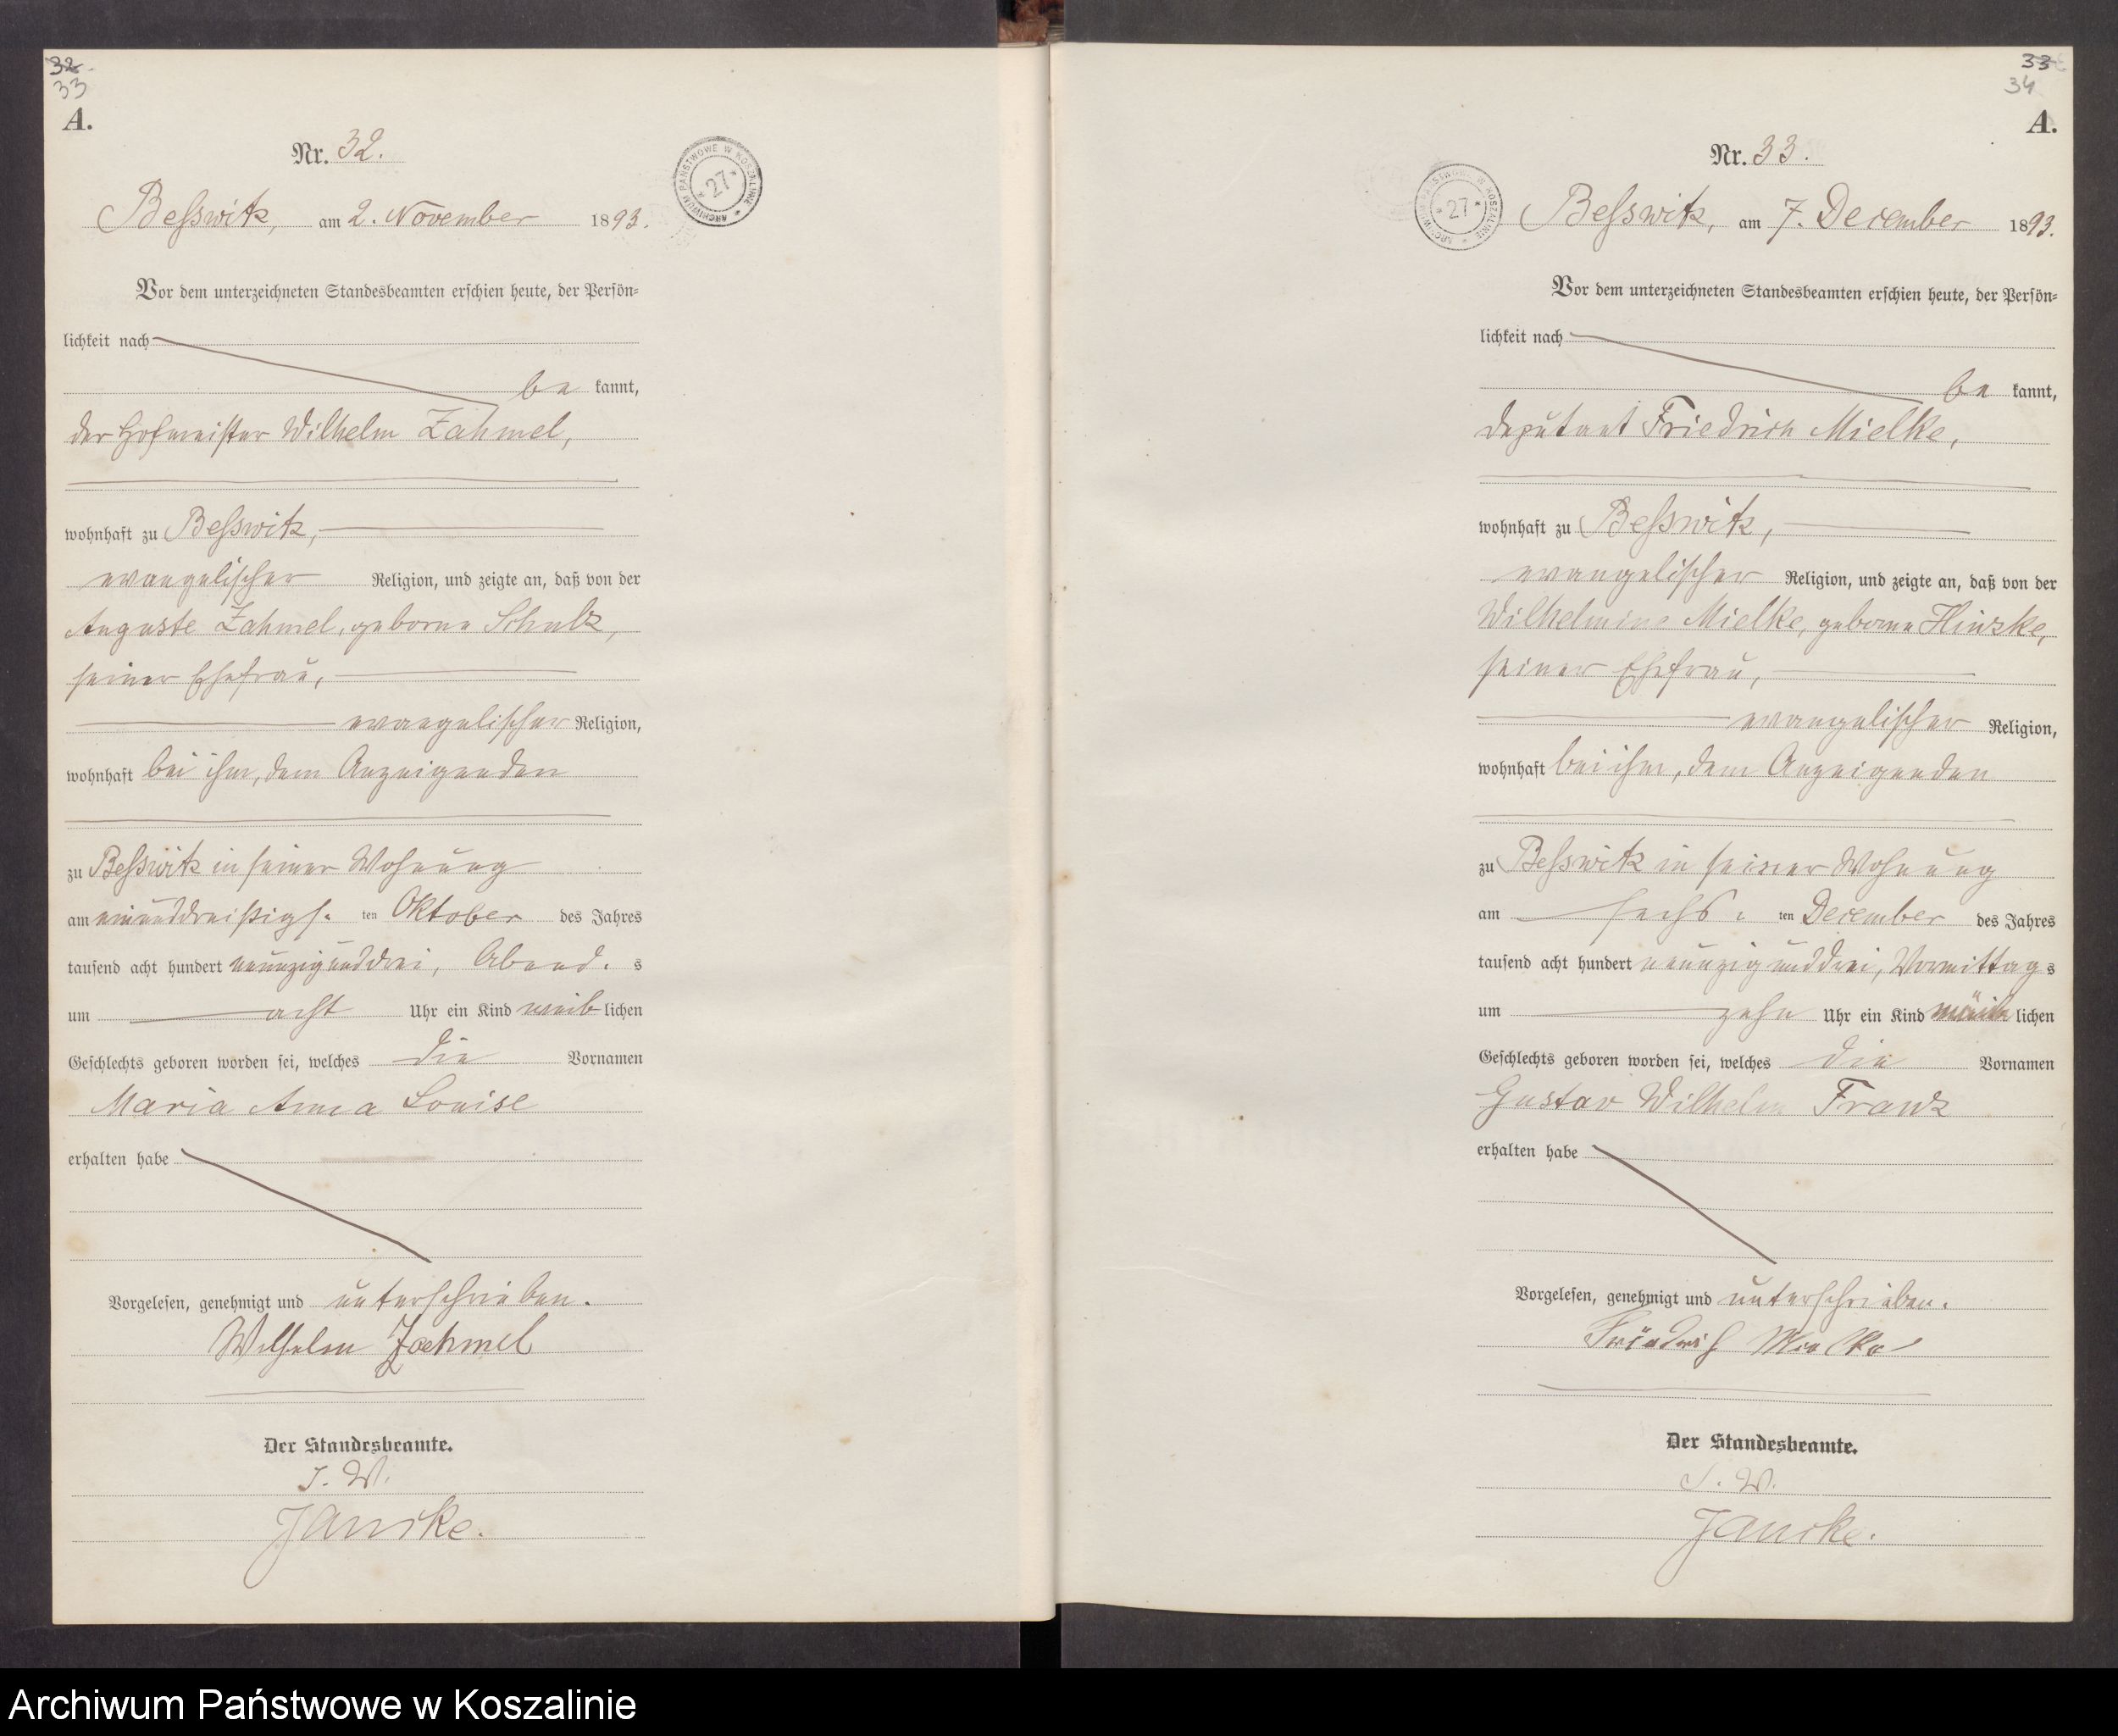 32.
33
A.
Nr. 32.
ARCHIWUM PAŃSTWOWE W KOSZALINIE * 27 *
Beßwitz, am 2. November 1893.
Vor dem unterzeichneten Standesbeamten erschien heute, der Persön-
lichkeit nach
be kannt,
der Hofmeister Wilhelm Zahmel,
wohnhaft zu Beßwitz,
evangelischer Religion, und zeigte an, daß von der
Auguste Zahmel, geborne Schulz,
seiner Ehefrau,
evangelischer Religion,
wohnhaft bei ihm, dem Anzeigenden
zu Beßwitz in seiner Wohnung
am einunddreißigs. ten Oktober des Jahres
tausend acht hundert neunzigunddrei, Abend. s
um acht Uhr ein Kind weib lichen
Geschlechts geboren worden sei, welches die Vornamen
Maria Anna Louise
erhalten habe
Vorgelesen, genehmigt und unterschrieben.
Wilhelm Zaehmel
Der Standesbeamte.
J. V.
Janske.
33
34
A.
Nr. 33.
ARCHIWUM PAŃSTWOWE W KOSZALINIE * 27 *
Beßwitz, am 7. December 1893.
Vor dem unterzeichneten Standesbeamten erschien heute, der Persön-
lichkeit nach
be kannt,
Deputant Friedrich Mielke,
wohnhaft zu Beßwitz,
evangelischer Religion, und zeigte an, daß von der
Wilhelmine Mielke, geborne Hinzke,
seiner Ehefrau,
evangelischer Religion,
wohnhaft bei ihm, dem Anzeigenden
zu Beßwitz in seiner Wohnung
am sechs. ten December des Jahres
tausend acht hundert neunzigunddrei, Vormittag s
um zehn Uhr ein Kind männ lichen
Geschlechts geboren worden sei, welches die Vornamen
Gustav Wilhelm Franz
erhalten habe
Vorgelesen, genehmigt und unterschrieben.
Friedrich Mielke
Der Standesbeamte.
J. V.
Janske.
Archiwum Państwowe w Koszalinie